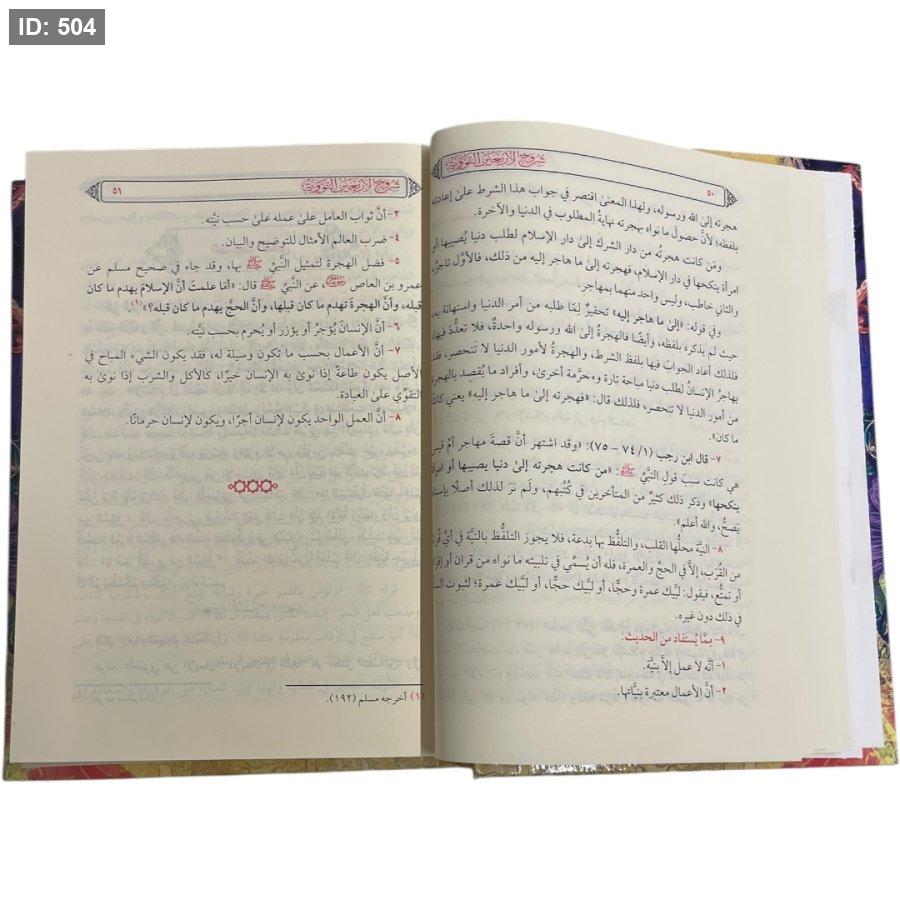 ID: 504
شروح الأربعين النووية
٥٠
هجرته إلىٰ الله ورسوله، ولهذا المعنىٰ اقتصر في جواب هذا الشرط علىٰ إعادته
بلفظه؛ لأنَّ حصولَ ما نواه بهجرته نهايةُ المطلوب في الدنيا والآخرة.
ومَن كانت هجرتُه من دار الشرك إلىٰ دار الإسلام لطلب دنيا يُصيبها أو
امرأة ينكحها في دار الإسلام، فهجرته إلىٰ ما هاجر إليه من ذلك، فالأوَّل تاجرٌ،
والثاني خاطب، وليس واحد منهما بمهاجر.
وفي قوله: «إلىٰ ما هاجر إليه» تحقيرٌ لِمَا طلبه من أمر الدنيا واستهانة به،
حيث لم يذكره بلفظه، وأيضًا فالهجرةُ إلىٰ الله ورسوله واحدةٌ، فلا تعدُّدَ فيها،
فلذلك أعاد الجوابَ فيها بلفظ الشرط، والهجرةُ لأمور الدنيا لا تَنحصر، فقد
يهاجرُ الإنسانُ لطلب دنيا مباحة تارة ومحرَّمة أخرىٰ، وأفراد ما يُقصد بالهجرة
من أمور الدنيا لا تنحصر، فلذلك قال: «فهجرته إلىٰ ما هاجر إليه» يعني كائنًا
ما كان».
٧- قال ابن رجب (١/ ٧٤ – ٧٥): «وقد اشتهر أنَّ قصةَ مهاجر أمِّ قيس
هي كانت سببَ قولِ النَّبيِّ ﷺ: «من كانت هجرته إلىٰ دنيا يصيبها أو امرأة
ينكحها» وذكر ذلك كثيرٌ من المتأخرين في كُتُبهم، ولَم نرَ لذلك أصلًا بإسناد
يَصحُّ، والله أعلم».
٨- النيَّة محلُّها القلب، والتلفُّظ بها بدعة، فلا يجوز التلفُّظ بالنيَّة في أيِّ
من القُرَب، إلاَّ في الحجِّ والعمرة، فله أن يُسمِّي في تلبيته ما نواه من قران أو إفراد
أو تمتُّع، فيقول: لبَّيك عمرة وحجًّا، أو لبَّيك حجًّا، أو لبَّيك عمرة؛ لثبوت
في ذلك دون غيره.
٩- مِمَّا يُستفاد من الحديث:
١- أنَّه لا عمل إلاَّ بنيَّة.
٢- أنَّ الأعمال معتبرة بنيَّاتها.
شروح الأربعين النووية
٥١
٣- أنَّ ثواب العامل علىٰ عمله علىٰ حسب نيَّته.
٤- ضرب العالم الأمثال للتوضيح والبيان.
٥- فضل الهجرة لتمثيل النَّبيِّ ﷺ بها، وقد جاء في صحيح مسلم عن
عمرو بن العاص رضي الله عنه، عن النَّبيِّ ﷺ قال: «أمَا علمتَ أنَّ الإسلامَ يهدم ما كان
قبله، وأنَّ الهجرةَ تهدم ما كان قبلها، وأنَّ الحجَّ يهدم ما كان قبله؟»(١)
٦- أنَّ الإنسانَ يُؤجرُ أو يؤزر أو يُحرم بحسب نيَّته.
٧- أنَّ الأعمال بحسب ما تكون وسيلة له، فقد يكون الشيء المباح في
الأصل يكون طاعةً إذا نوىٰ به الإنسان خيرًا، كالأكل والشرب إذا نوىٰ به
التقوِّي علىٰ العبادة.
٨- أنَّ العمل الواحد يكون لإنسان أجرًا، ويكون لإنسان حرمانًا.
(١) أخرجه مسلم (١٩٢).